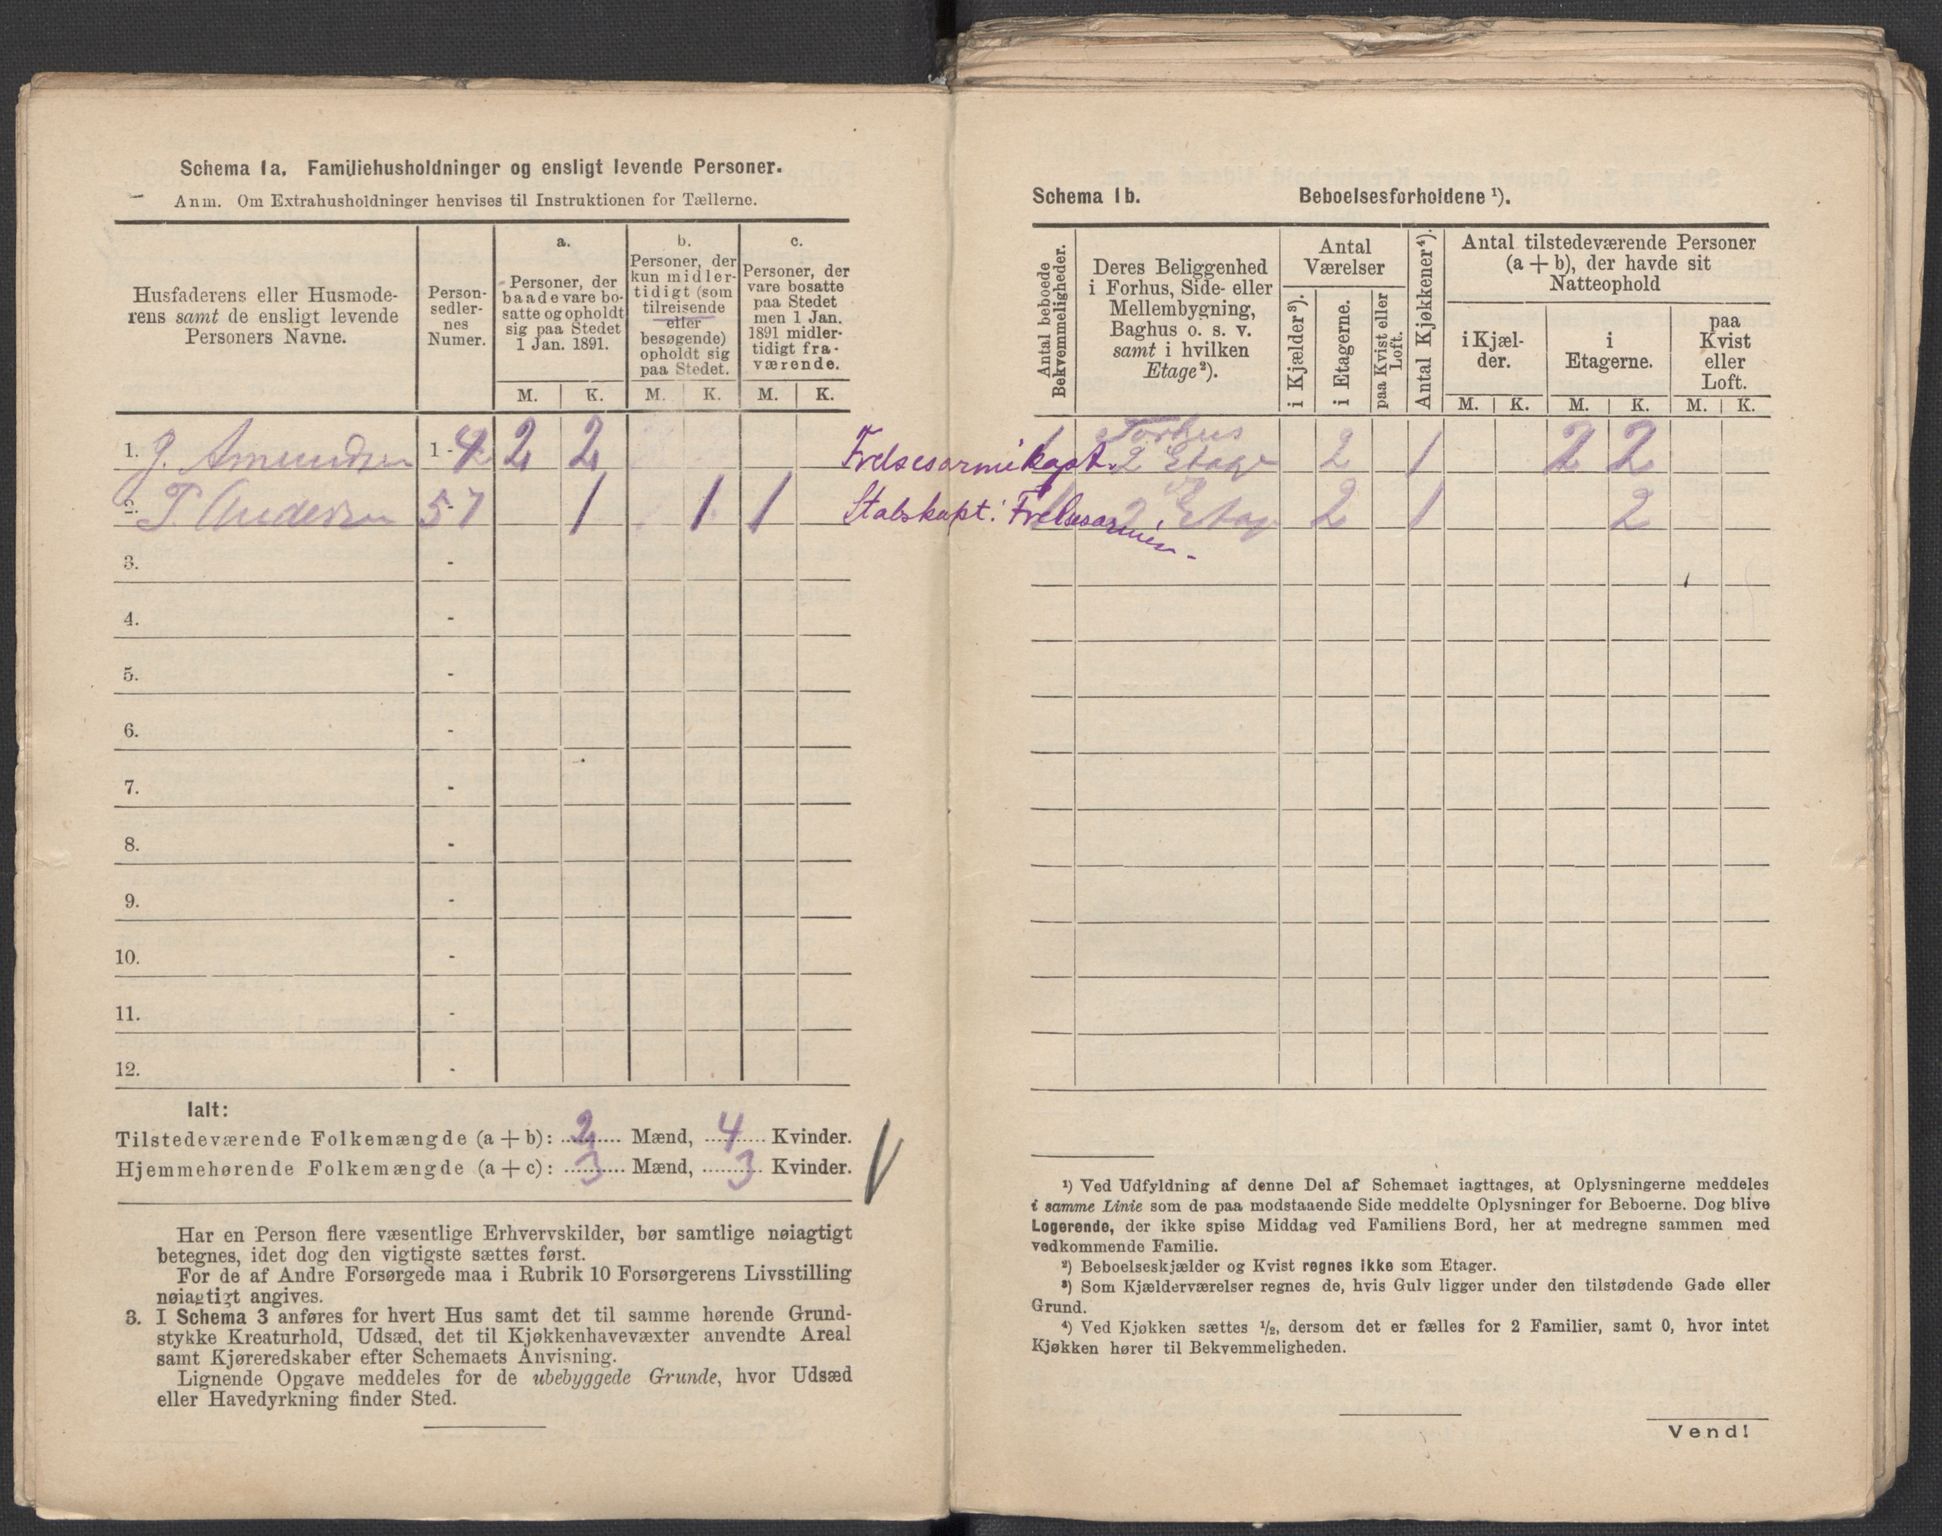 Schema 1a. Familiehusholdninger og ensligt levende Personer.
Anm. Om Extrahusholdninger henvises til Instruktionen for Tællerne.
Husfaderens eller Husmode-
rens samt de ensligt levende
Personers Navne.
Person-
sedler-
nes
Numer.
a.
Personer, der
baade vare bo-
satte og opholdt
sig paa Stedet
1 Jan. 1891.
b.
Personer, der
kun midler-
tidigt (som
tilreisende
eller
besøgende)
opholdt sig
paa Stedet.
c.
Personer, der
vare bosatte
paa Stedet
men 1 Jan.
1891 midler-
tidigt fra-
værende.
M. K. M. K. M. K.
1. J. Amundsen 1 - 4 2 2 Frelsesarmikapt.
2. P. Andersen 5 - 7 1 1 1 Stabskapt. i Frelsesarmien -
3. -
4. -
5. -
6. -
7. -
8. -
9. -
10. -
11. -
12. -
Ialt:
Tilstedeværende Folkemængde (a + b): 2 Mænd, 4 Kvinder.
Hjemmehørende Folkemængde (a + c): 3 Mænd, 3 Kvinder.
Har en Person flere væsentlige Erhvervskilder, bør samtlige nøiagtigt
betegnes, idet dog den vigtigste sættes først.
For de af Andre Forsørgede maa i Rubrik 10 Forsørgerens Livsstilling
nøiagtigt angives.
3. I Schema 3 anføres for hvert Hus samt det til samme hørende Grund-
stykke Kreaturhold, Udsæd, det til Kjøkkenhavevæxter anvendte Areal
samt Kjøreredskaber efter Schemaets Anvisning.
Lignende Opgave meddeles for de ubebyggede Grunde, hvor Udsæd
eller Havedyrkning finder Sted.
Schema 1b. Beboelsesforholdene ¹).
Antal beboede
Bekvemmeligheder.
Deres Beliggenhed
i Forhus, Side- eller
Mellembygning,
Baghus o. s. v.
samt i hvilken
Etage²).
Antal
Værelser
i Kjælder³).
i Etagerne.
paa Kvist eller
Loft.
Antal Kjøkkener⁴).
Antal tilstedeværende Personer
(a + b), der havde sit
Natteophold
i Kjæl-
der.
i
Etagerne.
paa
Kvist
eller
Loft.
M. K. M. K. M. K.
1 Forhus
2 Etage 2 1 2 2
1 2 Etage 2 1 2
¹) Ved Udfyldning af denne Del af Schemaet iagttages, at Oplysningerne meddeles
i samme Linie som de paa modstaaende Side meddelte Oplysninger for Beboerne. Dog blive
Logerende, der ikke spise Middag ved Familiens Bord, her at medregne sammen med
vedkommende Familie.
²) Beboelseskjælder og Kvist regnes ikke som Etager.
³) Som Kjælderværelser regnes de, hvis Gulv ligger under den tilstødende Gade eller
Grund.
⁴) Ved Kjøkken sættes ½, dersom det er fælles for 2 Familier, samt 0, hvor intet
Kjøkken hører til Bekvemmeligheden.
Vend!